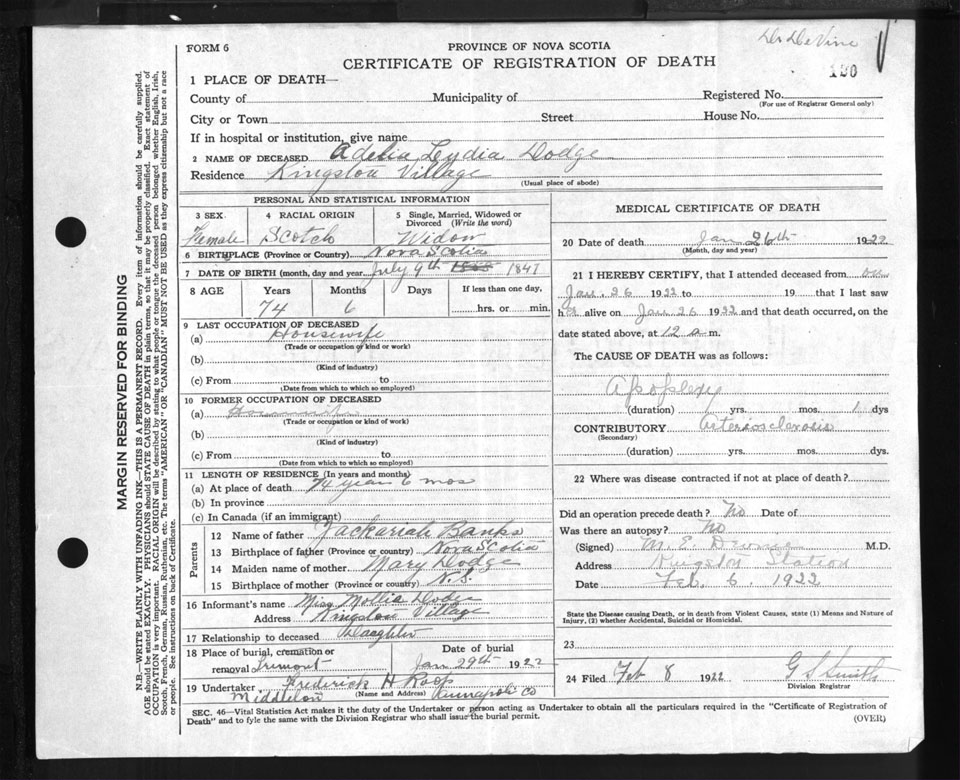 Dr DeVine
130
FORM 6
PROVINCE OF NOVA SCOTIA
CERTIFICATE OF REGISTRATION OF DEATH
MARGIN RESERVED FOR BINDING
N.B.—WRITE PLAINLY WITH UNFADING INK—THIS IS A PERMANENT RECORD. Every item of information should be carefully supplied.
AGE should be stated EXACTLY. PHYSICIANS should STATE CAUSE OF DEATH in plain terms, so that it may be properly classified. Exact statement of
OCCUPATION is very important. RACIAL ORIGIN will be described by stating to what people or tongue the deceased person belonged whether English, Irish,
Scotch, French, German, Russian, Ruthenian, etc. The terms "AMERICAN" OR "CANADIAN" MUST NOT BE USED as they express citizenship but not a race
or people. See instructions on back of Certificate.
1 PLACE OF DEATH—
County of Municipality of Registered No.
(For use of Registrar General only)
City or Town Street House No.
If in hospital or institution, give name
2 NAME OF DECEASED Adelia Lydia Dodge
Residence Kingston Village
(Usual place of abode)
PERSONAL AND STATISTICAL INFORMATION
3 SEX 4 RACIAL ORIGIN 5 Single, Married, Widowed or
Divorced (Write the word)
Female Scotch Widow
6 BIRTHPLACE (Province or Country) Nova Scotia
7 DATE OF BIRTH (month, day and year) July 9th 1847
8 AGE Years Months Days If less than one day,
74 6 hrs. or min.
9 LAST OCCUPATION OF DECEASED
(a) Housewife
(Trade or occupation or kind or work)
(b)
(Kind of industry)
(c) From to
(Date from which to which so employed)
10 FORMER OCCUPATION OF DECEASED
(a) Housewife
(Trade or occupation or kind of work)
(b)
(Kind of industry)
(c) From to
(Date from which to which so employed)
11 LENGTH OF RESIDENCE (In years and months)
(a) At place of death 74 years 6 mos
(b) In province
(c) In Canada (if an immigrant)
Parents
12 Name of father Zackariah Banks
13 Birthplace of father (Province or country) Nova Scotia
14 Maiden name of mother Mary Dodge
15 Birthplace of mother (Province or country) N.S.
16 Informant's name Miss Mollie Dodge
Address Kingston Village
17 Relationship to deceased Daughter
18 Place of burial, cremation or Date of burial
removal Tremont Jan 29th 1922
19 Undertaker Frederick H
(Name and Address)
Middleton Annapolis Co
MEDICAL CERTIFICATE OF DEATH
20 Date of death Jan 26th 1922
(Month, day and year)
21 I HEREBY CERTIFY, that I attended deceased from on
Jan. 26 1922 to 19 that I last saw
her alive on Jan 26 1922 and that death occurred, on the
date stated above, at 12 a m.
The CAUSE OF DEATH was as follows:
Apoplexy
(duration) yrs. mos. 1 dys
CONTRIBUTORY Arteriosclerosis
(Secondary)
(duration) yrs. mos. dys.
22 Where was disease contracted if not at place of death?
Did an operation precede death? No Date of
Was there an autopsy? No
(Signed) M. E. M.D.
Address Kingston Station
Date Feb. 6. 1922
State the Disease causing Death, or in death from Violent Causes, state (1) Means and Nature of
Injury, (2) whether Accidental, Suicidal or Homicidal.
23
24 Filed Feb 8 1922 G S Smith
Division Registrar
SEC. 46—Vital Statistics Act makes it the duty of the Undertaker or person acting as Undertaker to obtain all the particulars required in the "Certificate of Registration of
Death" and to fyle the same with the Division Registrar who shall issue the burial permit.
(OVER)